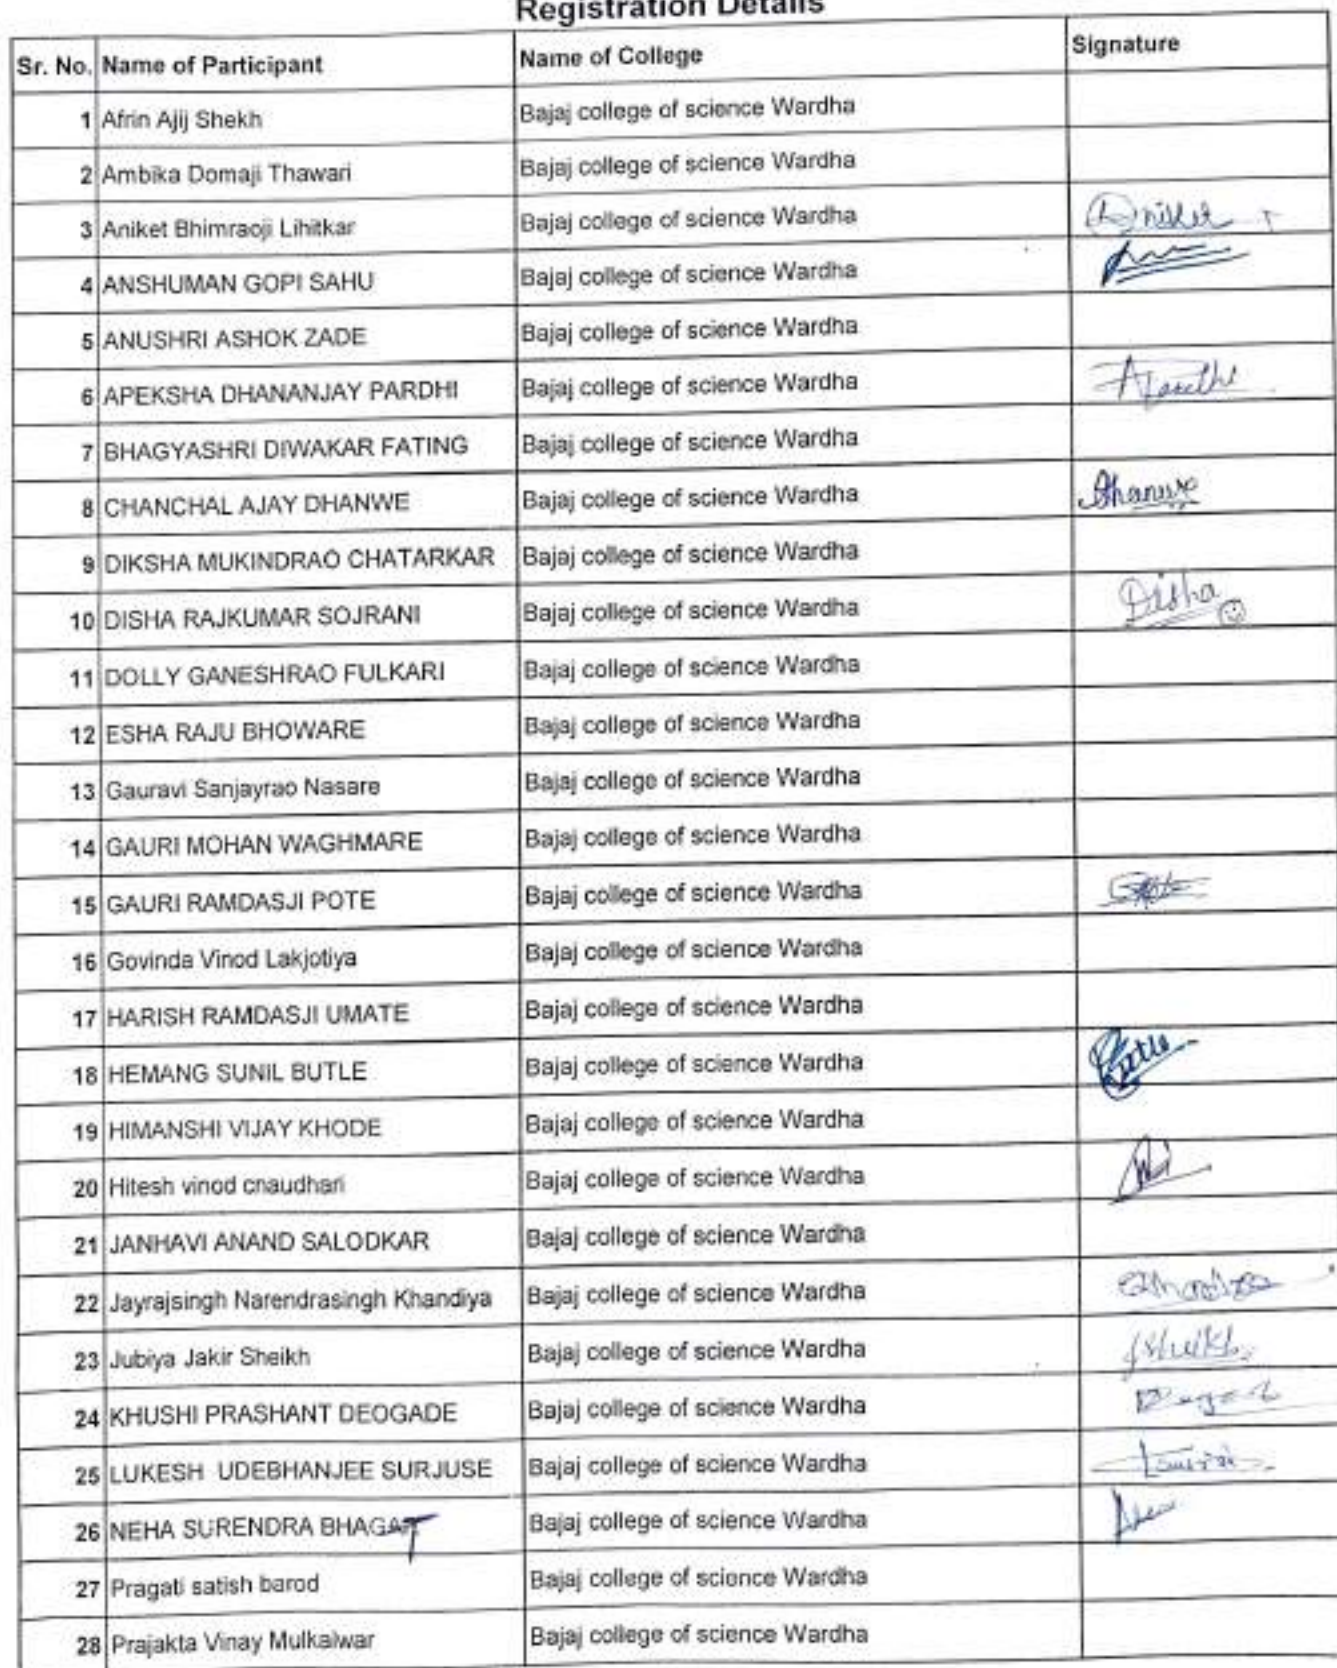 Registration Details
Sr. No. Name of Participant Name of College Signature
1 Afrin Ajij Shekh Bajaj college of science Wardha
2 Ambika Domaji Thawari Bajaj college of science Wardha
3 Aniket Bhimraoji Lihitkar Bajaj college of science Wardha Aniket
4 ANSHUMAN GOPI SAHU Bajaj college of science Wardha
5 ANUSHRI ASHOK ZADE Bajaj college of science Wardha
6 APEKSHA DHANANJAY PARDHI Bajaj college of science Wardha
7 BHAGYASHRI DIWAKAR FATING Bajaj college of science Wardha
8 CHANCHAL AJAY DHANWE Bajaj college of science Wardha Dhanwe
9 DIKSHA MUKINDRAO CHATARKAR Bajaj college of science Wardha
10 DISHA RAJKUMAR SOJRANI Bajaj college of science Wardha Disha
11 DOLLY GANESHRAO FULKARI Bajaj college of science Wardha
12 ESHA RAJU BHOWARE Bajaj college of science Wardha
13 Gauravi Sanjayrao Nasare Bajaj college of science Wardha
14 GAURI MOHAN WAGHMARE Bajaj college of science Wardha
15 GAURI RAMDASJI POTE Bajaj college of science Wardha
16 Govinda Vinod Lakjotiya Bajaj college of science Wardha
17 HARISH RAMDASJI UMATE Bajaj college of science Wardha
18 HEMANG SUNIL BUTLE Bajaj college of science Wardha Butle
19 HIMANSHI VIJAY KHODE Bajaj college of science Wardha
20 Hitesh vinod chaudhari Bajaj college of science Wardha
21 JANHAVI ANAND SALODKAR Bajaj college of science Wardha
22 Jayrajsingh Narendrasingh Khandiya Bajaj college of science Wardha
23 Jubiya Jakir Sheikh Bajaj college of science Wardha
24 KHUSHI PRASHANT DEOGADE Bajaj college of science Wardha
25 LUKESH UDEBHANJEE SURJUSE Bajaj college of science Wardha
26 NEHA SURENDRA BHAGAT Bajaj college of science Wardha
27 Pragati satish barod Bajaj college of science Wardha
28 Prajakta Vinay Mulkalwar Bajaj college of science Wardha